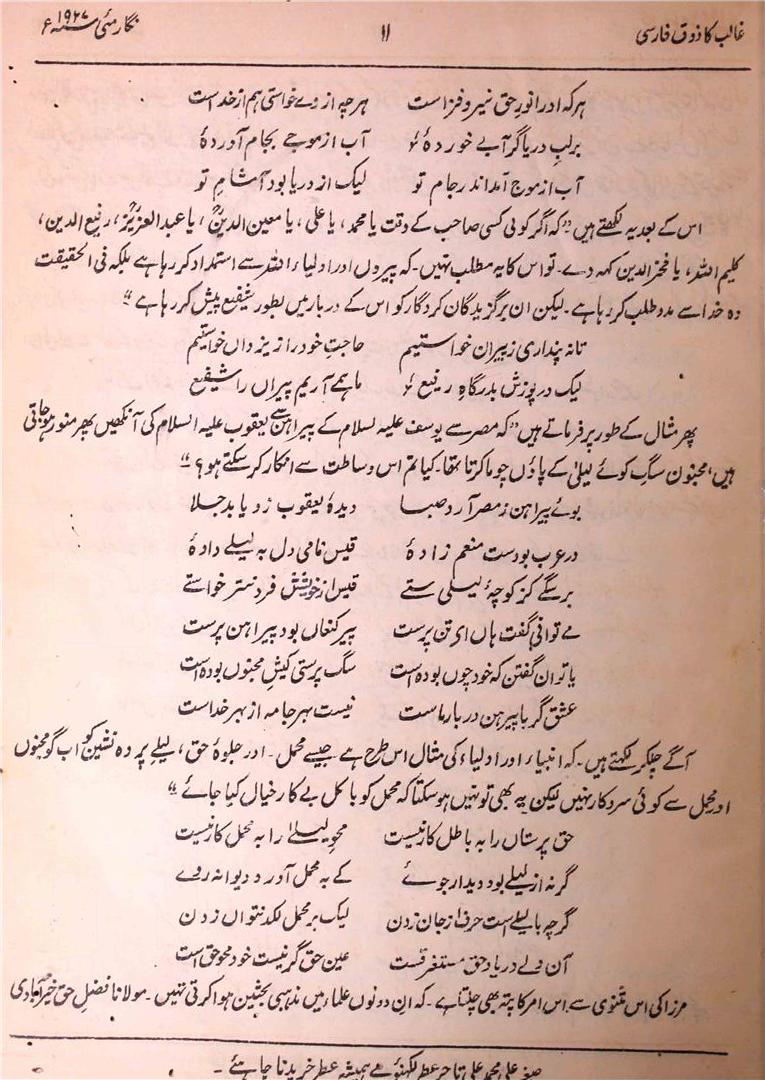 غالب کا ذوق فارسی ۱۱ نگار مئی سنہ ۱۹۲۷ء
ہر کہ اورا نورِ حق نیرو فزاست ہرچہ از وے خواستی ہم از خداست
بر لبِ دریا گر آبے خوردہٗ آب از موجے بجام آوردہٗ
آب از موج آمد اندر جام تو لیک از دریا بود آشام تو
اس کے بعد یہ لکھتے ہیں "کہ اگر کوئی کسی صاحب کے وقت یا محمد، یا علی، یا معین الدینؒ، یا عبدالعزیزؒ، رفیع الدین،
کلیم اللہ، یا فخر الدین کہہ دے۔ تو اس کا یہ مطلب نہیں۔ کہ پیروں اور اولیاء اللہ سے استمداد کر رہا ہے بلکہ فی الحقیقت
وہ خدا سے مدد طلب کر رہا ہے۔ لیکن ان برگزیدگان کردگار کو اس کے دربار میں بطور شفیع پیش کر رہا ہے"
تا نہ پنداری ز پیران خواستیم حاجتِ خود را ز یزداں خواستیم
لیک در پوزش بدرگاہِ رفیع ما ہمے آریم پیراں را شفیع
پھر مثال کے طور پر فرماتے ہیں "کہ مصر سے یوسف علیہ السلام کے پیراہن سے یعقوب علیہ السلام کی آنکھیں پھر منور ہو جاتی
ہیں، مجنون سگ کوئے لیلیٰ کے پاؤں چوما کرتا تھا۔ کیا تم اس وساطت سے انکار کر سکتے ہو؟"
بوئے پیراہن ز مصر آرد صبا دیدۂ یعقوب زو یابد جلا
در عرب بودست منعم زادۂ قیس نامی دل بہ لیلے دادۂ
بر سگے کز کوچۂ لیلی ستے قیس از خویشش فردنتر خواستے
مے توانی گفت ہاں ای تن پرست پیر کنعاں بود پیراہن پرست
یا توان گفتن کہ خود چوں بودہ است سگ پرستی کیشِ مجنوں بودہ است
عشق گر با پیرہن در بارماست نیست بہر جامہ از بہر خداست
آگے چلکر لکھتے ہیں۔ کہ انبیاء اور اولیاء کی مثال اس طرح ہے۔ جیسے محمل۔ اور جلوۂ حق، لیلےِ پردہ نشین کو اب گو مجنوں
اور محمل سے کوئی سروکار نہیں لیکن یہ بھی تو نہیں ہو سکتا کہ محمل کو بالکل بے کار خیال کیا جائے"
حق پرستاں را بہ باطل کار نیست محوِ لیلےٰ را بہ محمل کار نیست
گر نہ از لیلے بود دیدار جوے کے بہ محمل آورد دیوانہ روے
گرچہ با لیلےٰ است حرف از جان زدن لیک بر محمل لکد نتواں زدن
آن ولے در یادِ حق مستغرقست عین حق گر نیست خود محو حق است
مرزا کی اس مثنوی سے اس امر کا پتہ بھی چلتا ہے۔ کہ ان دونوں علماء میں مذہبی بحثیں ہوا کرتی تھیں۔ مولانا فضلِ حق خیرآبادی
علی محمد علی تاجر عطر لکھنؤ سے ہمیشہ عطر خریدنا چاہئے۔